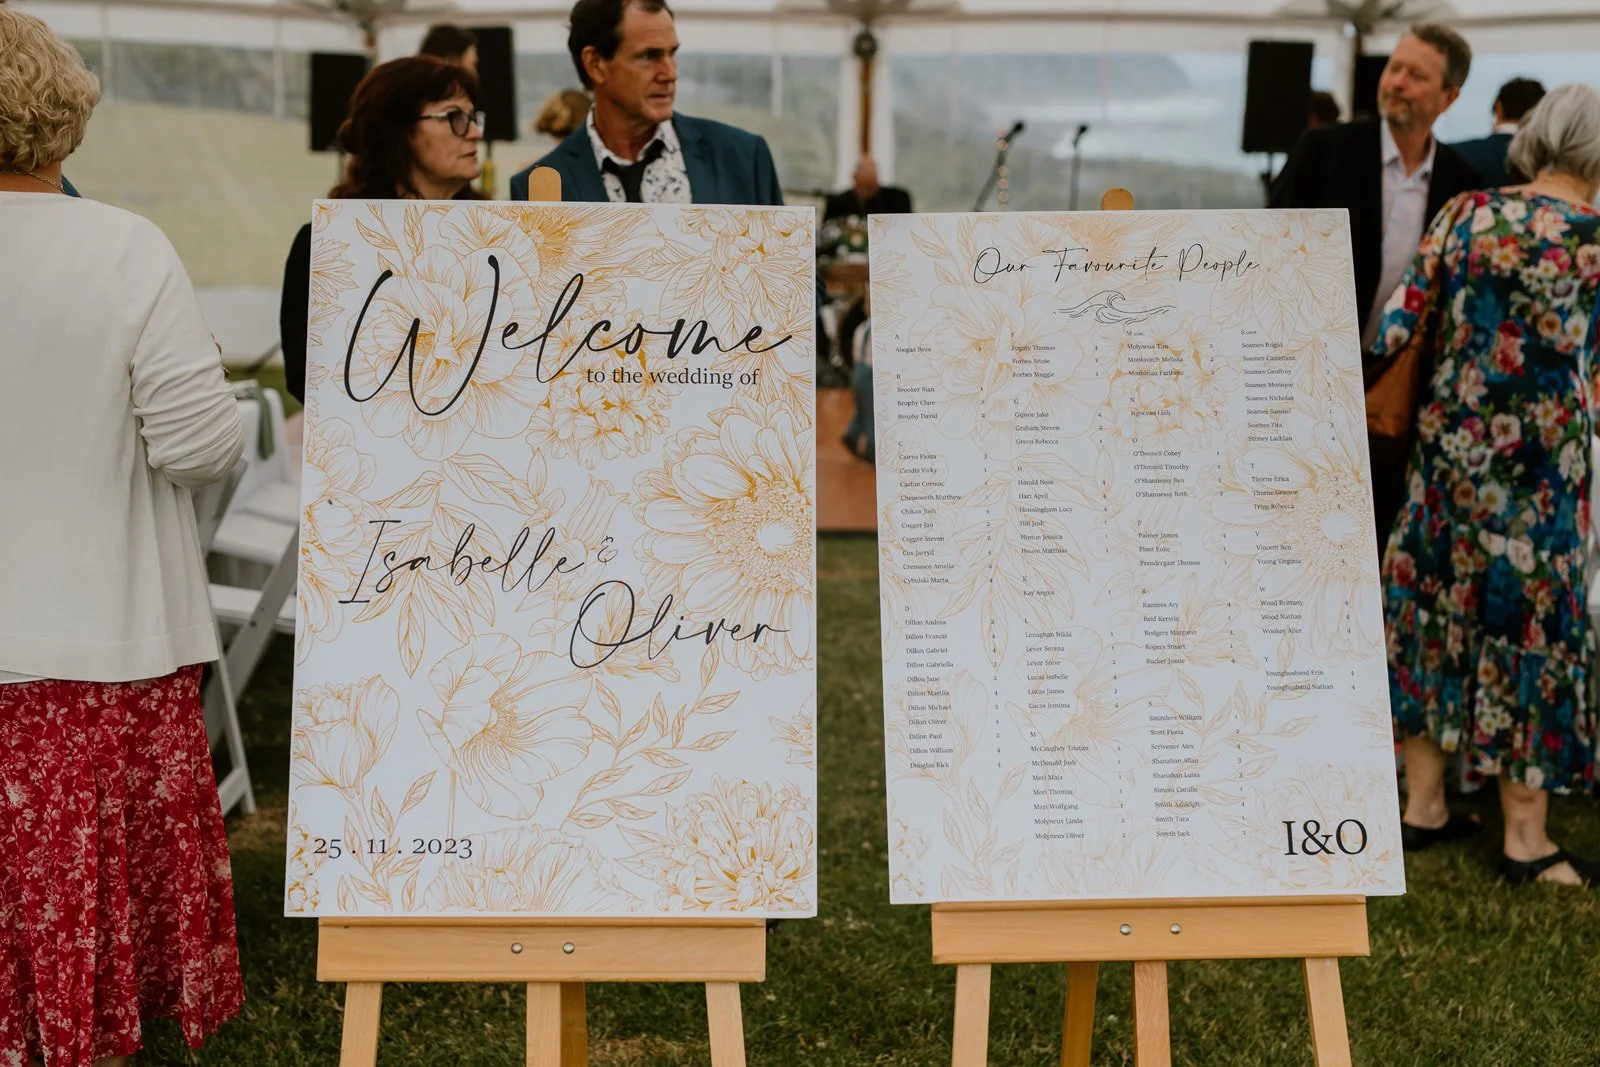 Welcome
to the wedding of
Isabelle &
Oliver
25 . 11 . 2023
Our Favourite People
A
Abegan Beza 1
B
Brooker Sian 1
Brophy Clare 3
Brophy David 2
C
Cairns Fiona 3
Candis Vicky 1
Cashin Cormac 1
Chenoweth Matthew 1
Chikan Josh 4
Cogger Jan 2
Cogger Steven 2
Cox Jarryd 4
Cremasco Amelia 4
Cybulski Marta 4
D
Dillon Andrea 2
Dillon Francis 4
Dillon Gabriel 4
Dillon Gabriella 3
Dillon Jane 2
Dillon Martha 4
Dillon Michael 2
Dillon Oliver 4
Dillon Paul 2
Dillon William 4
Douglas Rick 4
F
Fogaty Thomas 4
Forbes Annie 1
Forbes Maggie 1
G
Gipson Jake 4
Graham Steven 2
Green Rebecca 1
H
Harold Neni 4
Hart April 4
Henningham Lucy 4
Hill Josh 1
Hinton Jessica 1
Houve Matthias 1
K
Kay Angus 1
L
Lenaghan Nikki 1
Lever Serena 1
Lever Steve 2
Lucas Isabelle 4
Lucas James 3
Lucas Jemima 4
M
McCaughey Tristan 4
McDonald Josh 1
Meri Maja 1
Meri Thomas 1
Meri Wolfgang 1
Molyneux Linda 2
Molyneux Oliver 2
M cont.
Molyneux Tim 2
Moskivitch Melissa 2
Moshirian Fariborz 2
N
Ngocvan Linh 3
O
O'Donnell Cobey 1
O'Donnell Timothy 1
O'Shannessy Ben 1
O'Shannessy Beth 3
P
Palmer James 4
Plant Luke 1
Prendergast Thomas 1
R
Ramires Ary 4
Reid Kerstie 1
Rodgers Margaret 3
Rogers Stuart 1
Rucker Josie 4
S
Saunders William 1
Scott Fiona 2
Scrivener Alex 4
Shanahan Allan 3
Shanahan Luisa 3
Simoni Coralie 1
Smith Ashleigh 4
Smith Tara 1
Smyth Jack 1
S cont.
Soames Brigid 3
Soames Castellana 1
Soames Geoffrey 3
Soames Monique 1
Soames Nicholas 3
Soames Samuel 1
Soames Zita 3
Stoney Lachlan 4
T
Thorne Erica 3
Thorne Graeme 3
Trigg Rebecca 1
V
Vincent Ben 1
Vuong Virginia 4
W
Wood Brittany 4
Wood Nathan 4
Wookey Alice 4
Y
Younghusband Erin 4
Younghusband Nathan 4
I&O